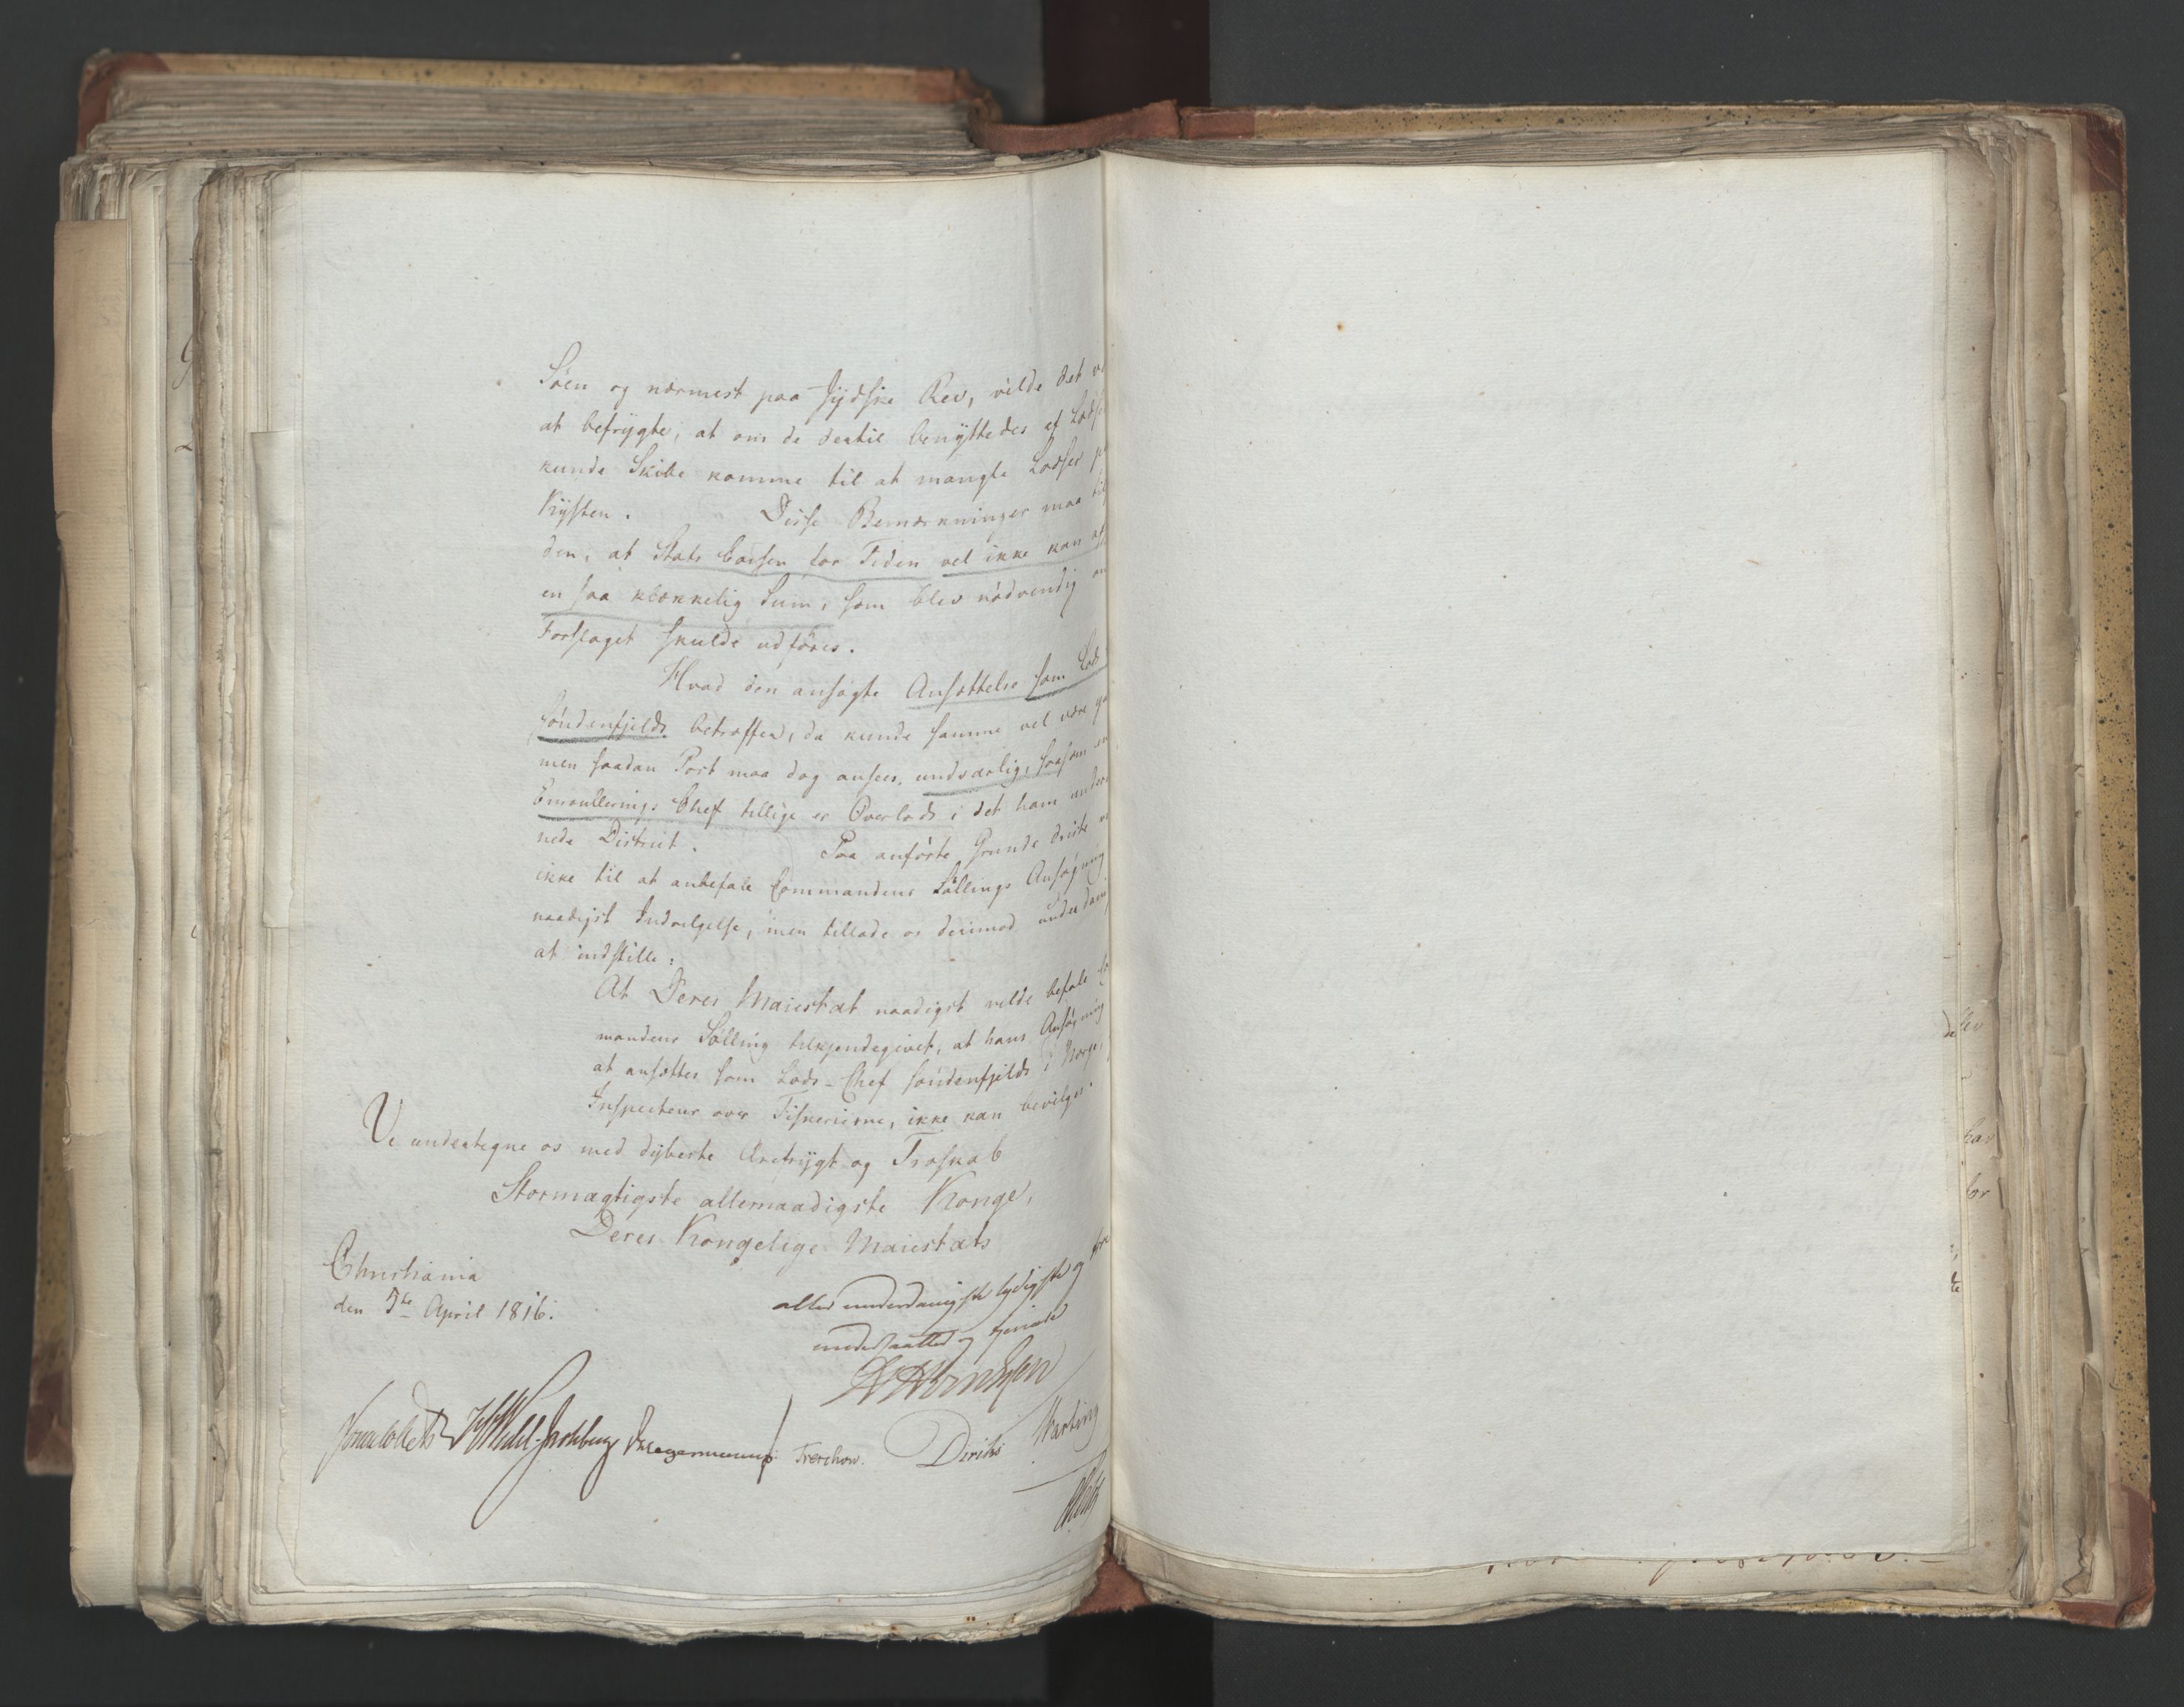 Søen og nærmest paa Jydske Rev, vilde det
at befrygte, at om de dertil benyttedes af Lods
kunde Skibe komme til at mangle Lodser
Kysten. Disse Bemærkninger maa
den, at Stats Cassen for Tiden vel ikke kan
en saa klækkelig Sum, som blev nødvendig om
Forslaget skulde udføres.
Hvad den ansøgte Ansættelse som Lods
søndenfjelds betræffer, da kunde samme vel være
men saadan Post maa dog ansees undværlig, saasom
Enroullerings Chef tillige er Overlods i det ham
nede District. Paa anførte Grunde driste
ikke til at anbefale Commandeur Søllings Ansøgning
naadigst Indvilgelse, men tillade os derimod
at indstille:
At Deres Maiestæt naadigst vilde befale
mandeur Sølling tilkjendegivet, at hans Ansøgning
at ansættes som Lods-Chef søndenfjelds i Norge,
Inspecteur over Fiskerierne, ikke kan bevilges.
Vi undertegne os med dybeste Ærefrygt og Troskab
Stormægtigste allernaadigste Konge,
Deres Kongelige Maiestæts
Christiania
den 5te April 1816.
allerunderdanigste lydigste og
undersaatter og tjenere
Treschow. Diriks